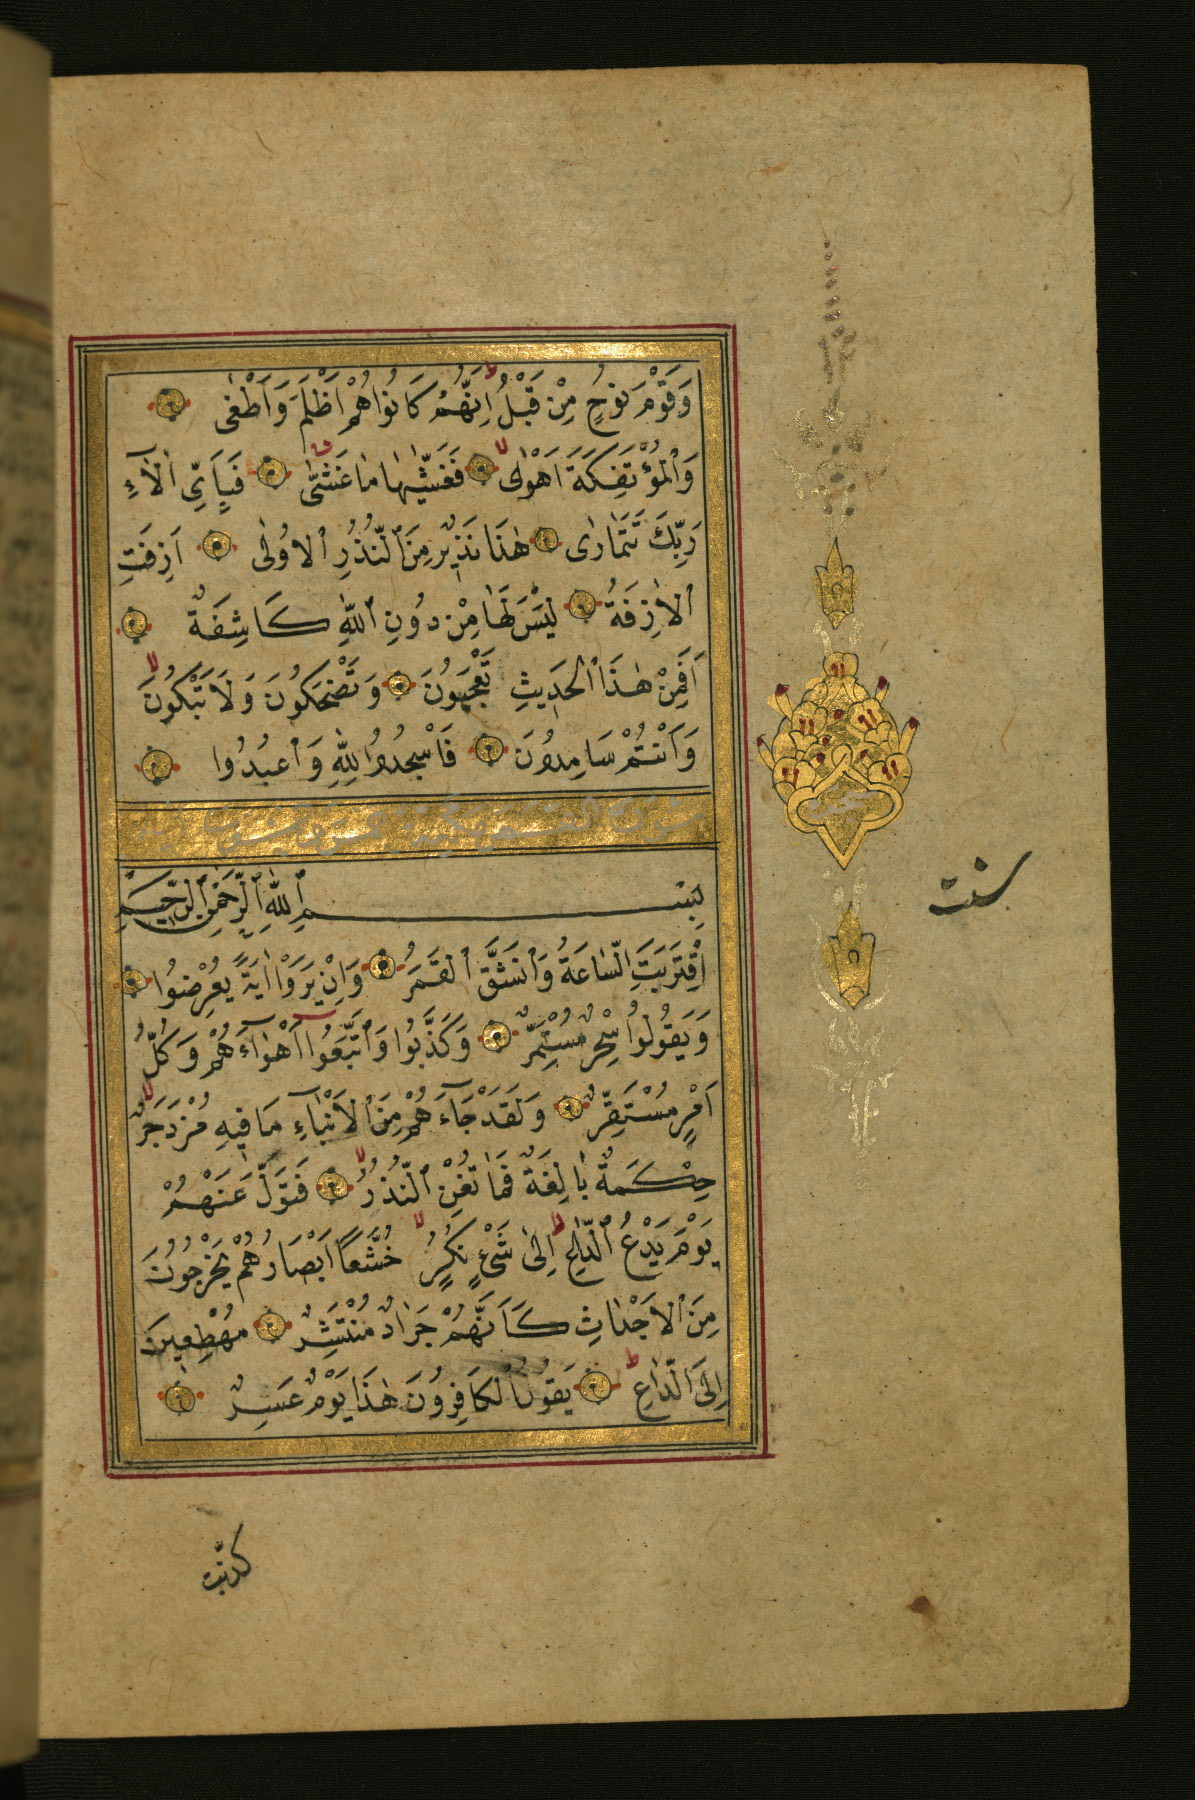 وَقَوْمَ نُوحٍ مِنْ قَبْلُ اِنَّهُمْ كَانُوا هُمْ اَظْلَمَ وَاَطْغٰى
وَالْمُؤْتَفِكَةَ اَهْوٰى فَغَشّٰيهَا مَا غَشّٰى فَبِاَيِّ اٰلَاۤءِ
رَبِّكَ تَتَمَارٰى هٰذَا نَذِيرٌ مِنَ النُّذُرِ الْاُولٰى اَزِفَتِ
الْاٰزِفَةُ لَيْسَ لَهَا مِنْ دُونِ اللّٰهِ كَاشِفَةٌ
اَفَمِنْ هٰذَا الْحَدِيثِ تَعْجَبُونَ وَتَضْحَكُونَ وَلَا تَبْكُونَ
وَاَنْتُمْ سَامِدُونَ فَاسْجُدُوا لِلّٰهِ وَاعْبُدُوا
سورة القمر
بِسْمِ اللّٰهِ الرَّحْمٰنِ الرَّحِيمِ
اِقْتَرَبَتِ السَّاعَةُ وَانْشَقَّ الْقَمَرُ وَاِنْ يَرَوْا اٰيَةً يُعْرِضُوا
وَيَقُولُوا سِحْرٌ مُسْتَمِرٌّ وَكَذَّبُوا وَاتَّبَعُوا اَهْوَاۤءَهُمْ وَكُلُّ
اَمْرٍ مُسْتَقِرٌّ وَلَقَدْ جَاۤءَهُمْ مِنَ الْاَنْبَاۤءِ مَا فِيهِ مُزْدَجَرٌ
حِكْمَةٌ بَالِغَةٌ فَمَا تُغْنِ النُّذُرُ فَتَوَلَّ عَنْهُمْ
يَوْمَ يَدْعُ الدَّاعِ اِلٰى شَيْءٍ نُكُرٍ خُشَّعًا اَبْصَارُهُمْ يَخْرُجُونَ
مِنَ الْاَجْدَاثِ كَاَنَّهُمْ جَرَادٌ مُنْتَشِرٌ مُهْطِعِينَ
اِلَى الدَّاعِ يَقُولُ الْكَافِرُونَ هٰذَا يَوْمٌ عَسِرٌ
كذبت